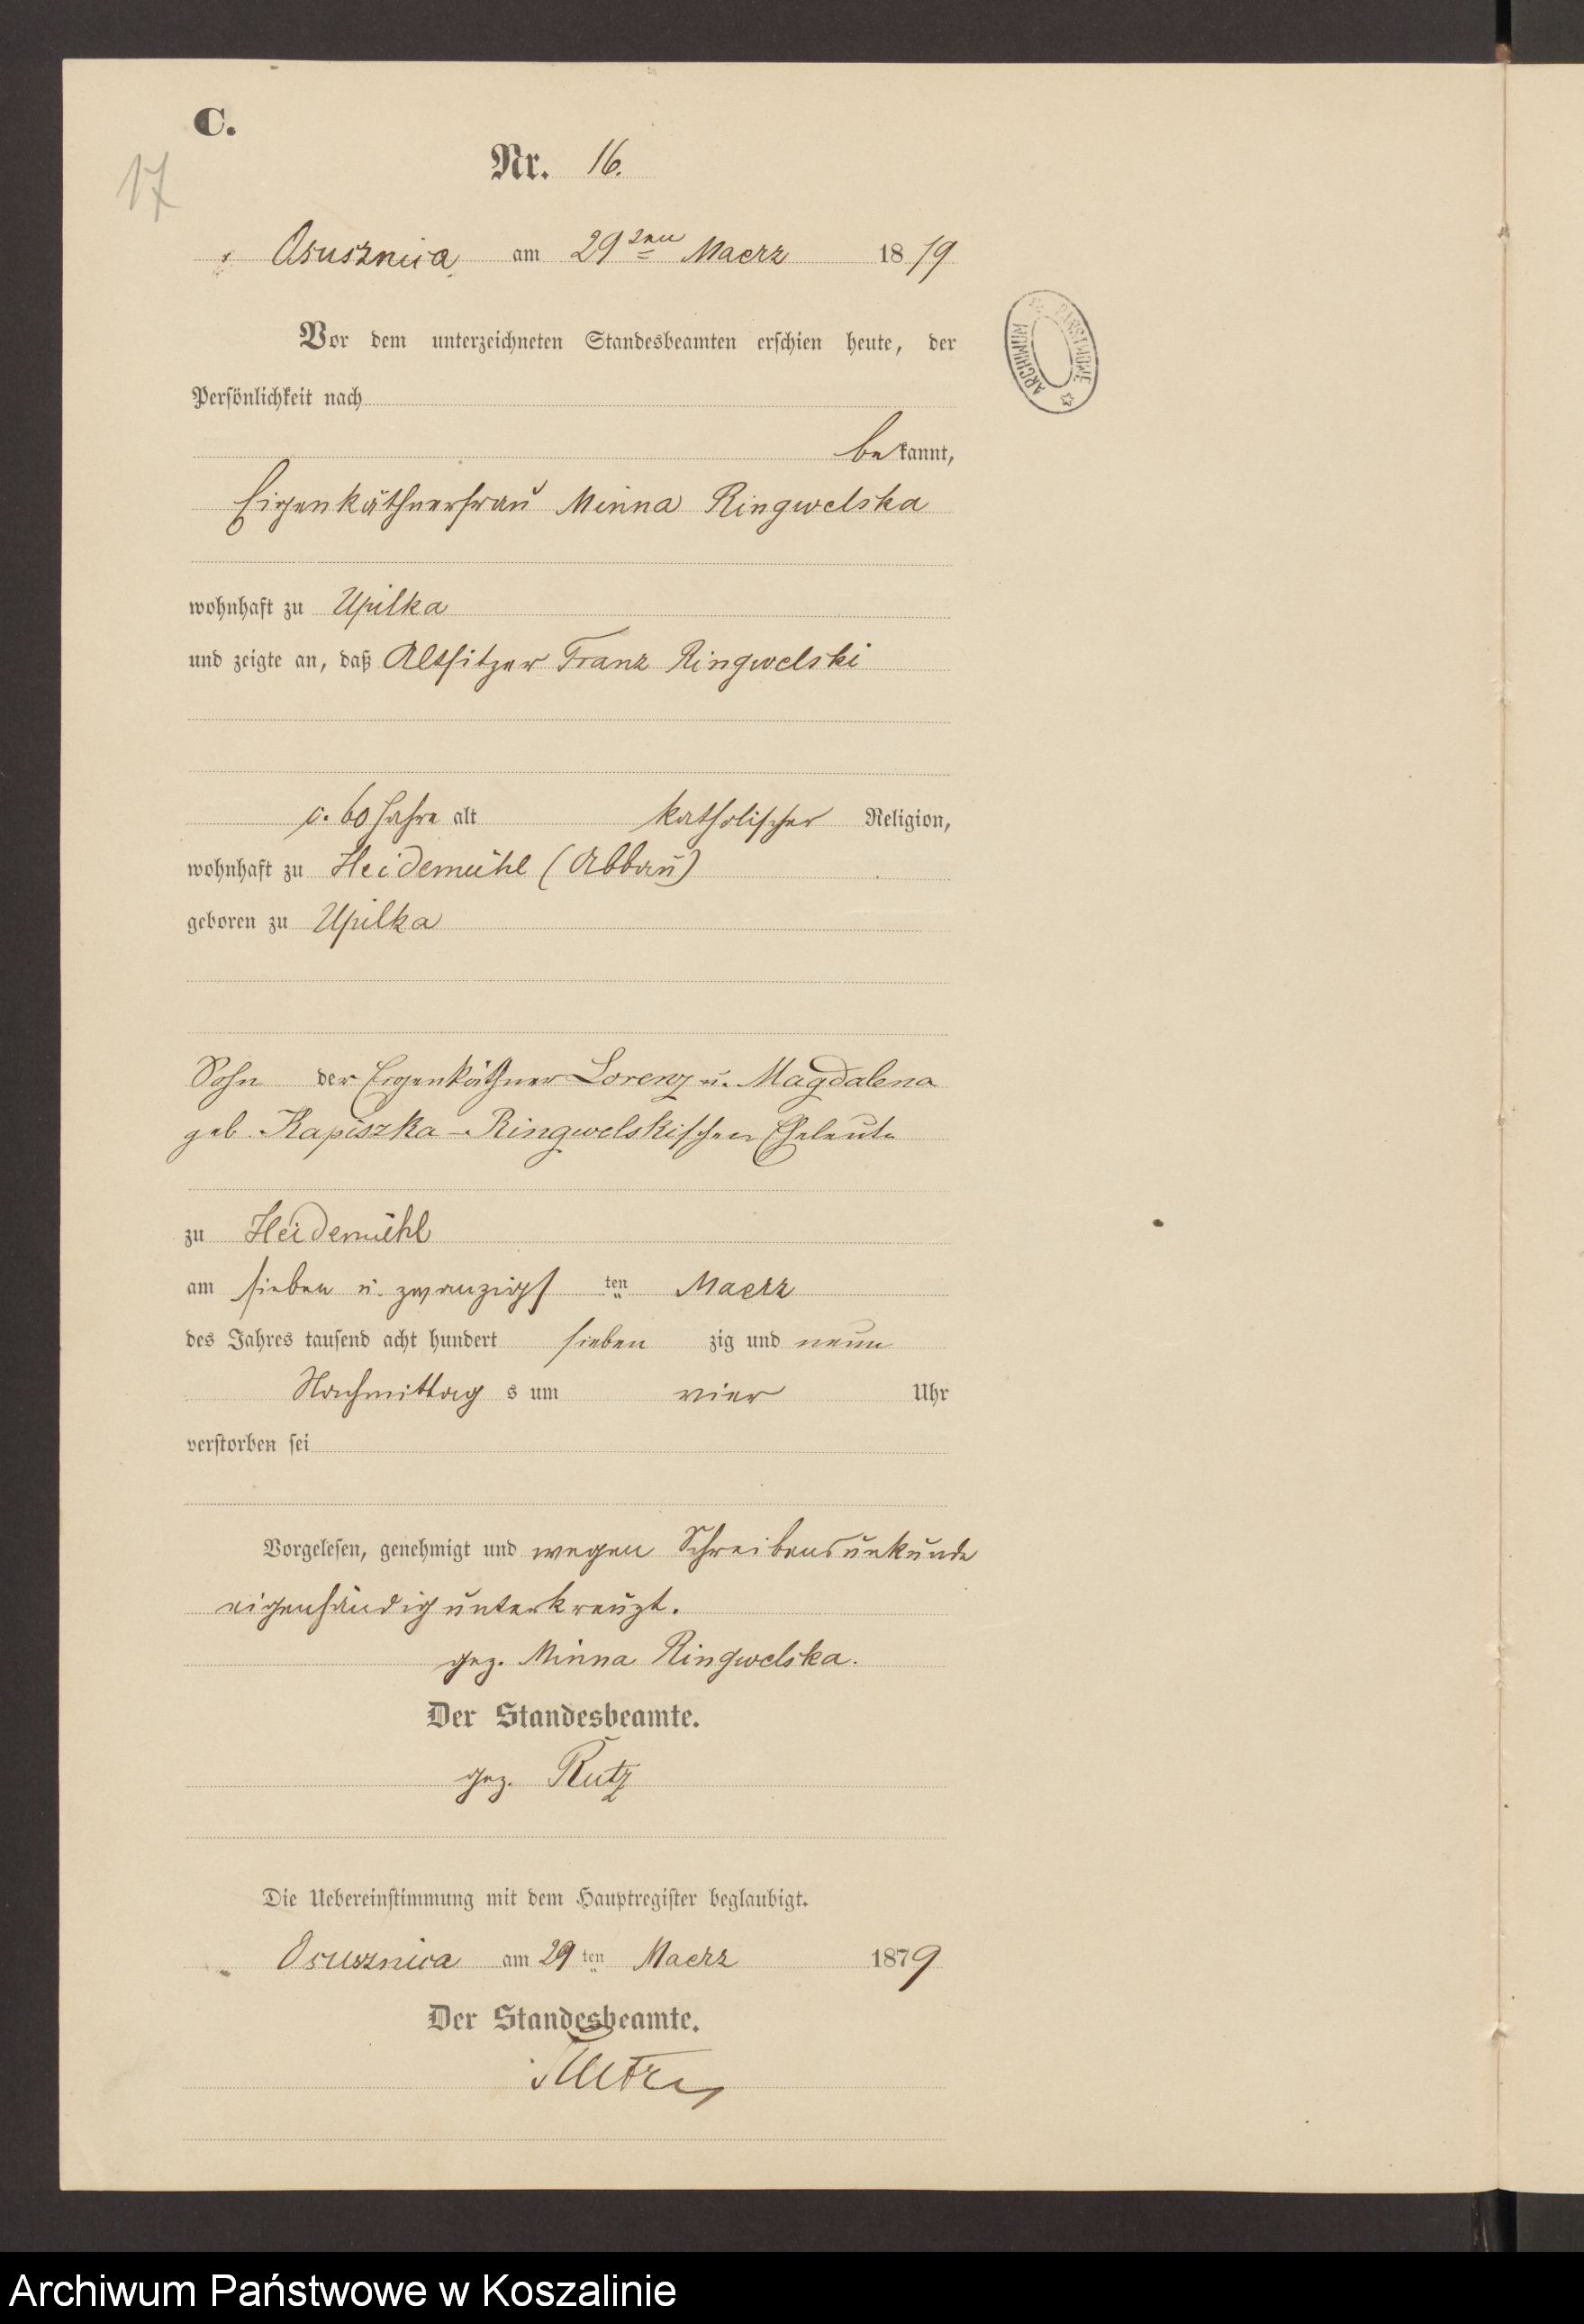 C.
17
Nr. 16.
Osusznica am 29ten Maerz 1879
Vor dem unterzeichneten Standesbeamten erschien heute, der
Persönlichkeit nach
bekannt,
Eigenkäthnerfrau Minna Ringwelska
wohnhaft zu Upilka
und zeigte an, daß Altsitzer Franz Ringwelski
c. 60 Jahre alt katholischer Religion,
wohnhaft zu Heidemühl (Abbau)
geboren zu Upilka
Sohn der Eigenkäthner Lorenz u. Magdalena
geb. Kapiszka-Ringwelskischen Eheleute
zu Heidemühl
am sieben u. zwanzigsten Maerz
des Jahres tausend acht hundert siebenzig und neun
Nachmittags um vier Uhr
verstorben sei
Vorgelesen, genehmigt und wegen Schreibensunkunde
eigenhändig unterkreuzt.
gez. Minna Ringwelska.
Der Standesbeamte.
gez. Rutz
Die Uebereinstimmung mit dem Hauptregister beglaubigt.
Osusznica am 29ten Maerz 1879
Der Standesbeamte.
Rutz
ARCHIWUM PAŃSTWOWE
Archiwum Państwowe w Koszalinie